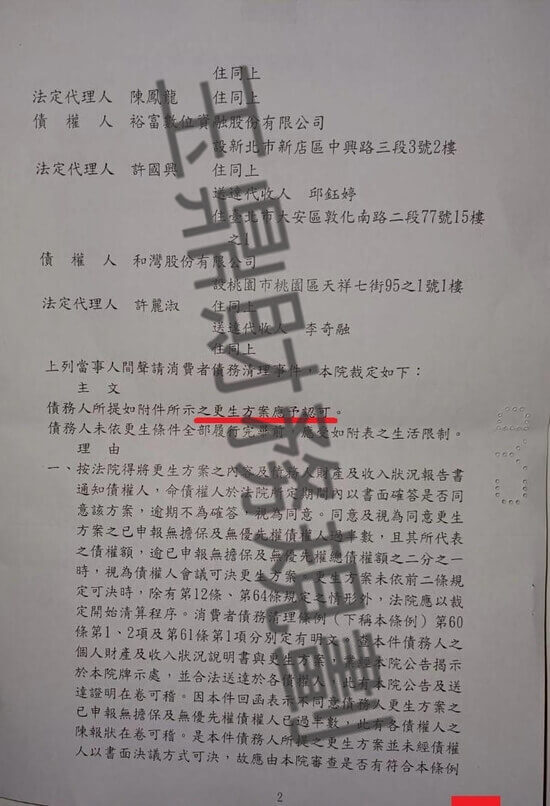 住同上
法定代理人 陳鳳龍 住同上
債權人 裕富數位資融股份有限公司
設新北市新店區中興路三段3號2樓
法定代理人 許國興 住同上
送達代收人 邱鈺婷
住臺北市大安區敦化南路二段77號15樓
之1
債權人 和灣股份有限公司
設桃園市桃園區天祥七街95之1號1樓
法定代理人 許麗淑 住同上
送達代收人 李奇融
住同上
上列當事人間聲請消費者債務清理事件,本院裁定如下:
主文
債務人所提如附件所示之更生方案應予認可。
債務人未依更生條件全部履行完畢前,應受如附表之生活限制。
理由
一、按法院得將更生方案之內容及債務人財產及收入狀況報告書
通知債權人,命債權人於法院所定期間內以書面確答是否同
意該方案,逾期不為確答,視為同意。同意及視為同意更生
方案之已申報無擔保及無優先權債權人過半數,且其所代表
之債權額,逾已申報無擔保及無優先權總債權額之二分之一
時,視為債權人會議可決更生方案。更生方案未依前二條規
定可決時,除有第12條、第64條規定之情形外,法院應以裁
定開始清算程序。消費者債務清理條例(下稱本條例)第60
條第1、2項及第61條第1項分別定有明文。查本件債務人之
個人財產及收入狀況說明書與更生方案,業經本院公告揭示
於本院牌示處,並合法送達於各債權人,此有本院公告及送
達證明在卷可稽。因本件回函表示不同意債務人更生方案之
已申報無擔保及無優先權債權人已過半數,此有各債權人之
陳報狀在卷可稽。是本件債務人所提之更生方案並未經債權
人以書面決議方式可決,故應由本院審查是否有符合本條例
2
玉鼎財務規劃